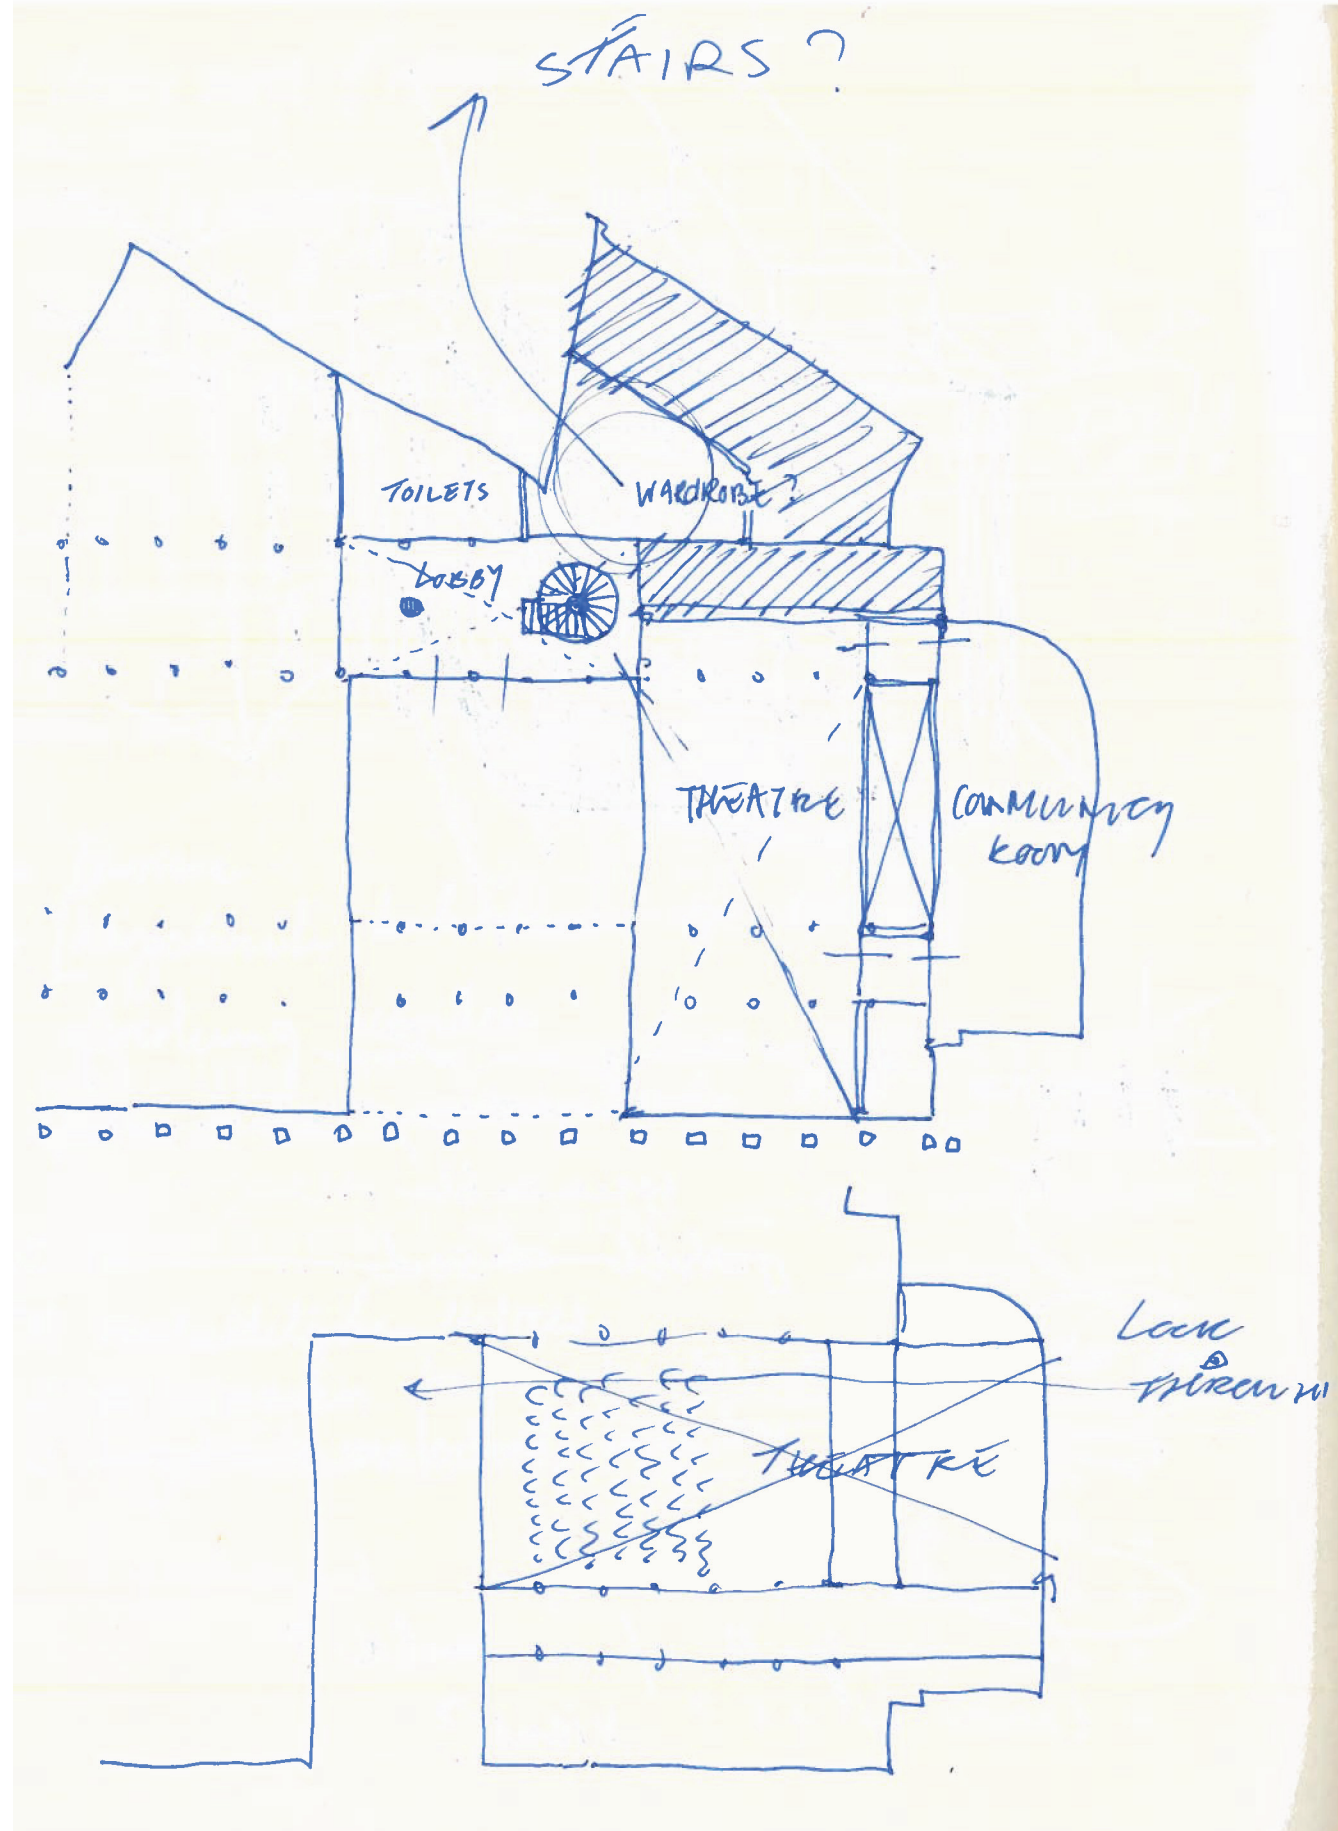 STAIRS?
TOILETS
WARDROBE?
LOBBY
THEATRE
COMMUNITY
ROOM
LOOK
THROUGH
THEATRE